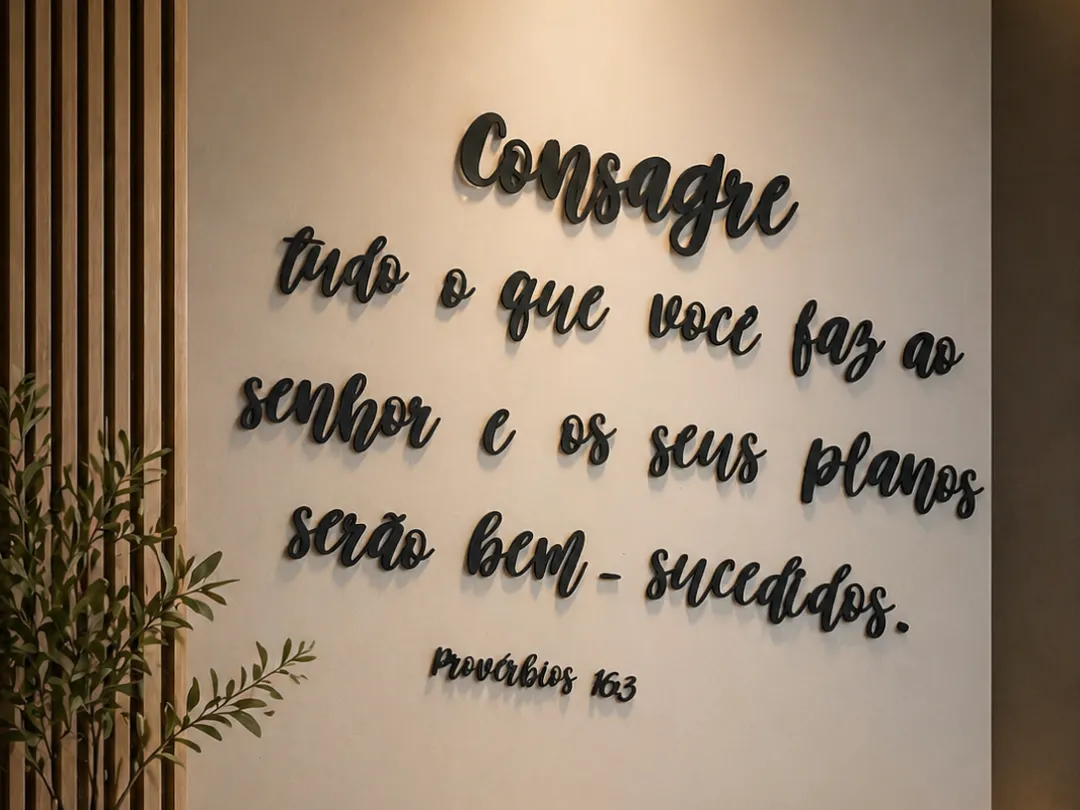 Consagre
tudo o que você faz ao
senhor e os seus planos
serão bem-sucedidos.
Provérbios 16:3